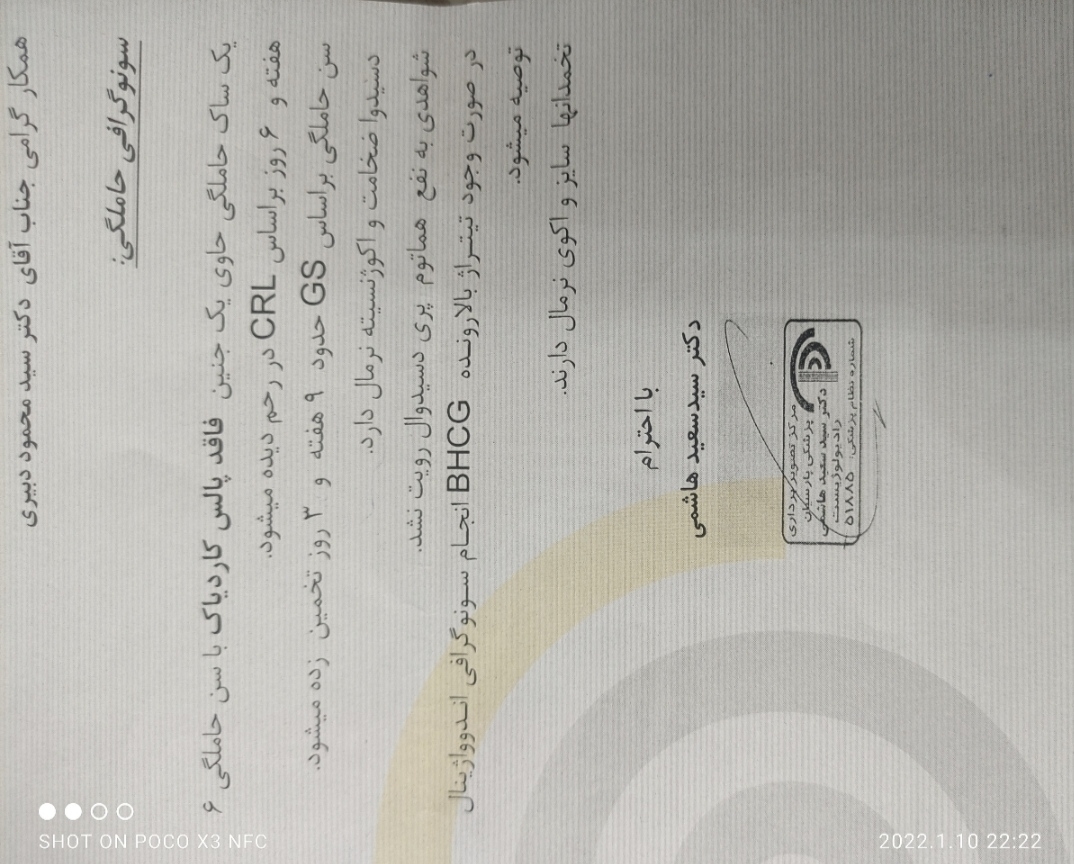 همکار گرامی جناب آقای دکتر سید محمود دبیری
سونوگرافی حاملگی:
یک ساک حاملگی حاوی یک جنین فاقد پالس کاردیاک با سن حاملگی ۶
هفته و ۶ روز براساس CRL در رحم دیده میشود.
سن حاملگی براساس GS حدود ۹ هفته و ۳ روز تخمین زده میشود.
دسیدوا ضخامت و اکوژنسیته نرمال دارد.
شواهدی به نفع هماتوم پری دسیدوال رویت نشد.
در صورت وجود تیتراژ بالارونده BHCG انجام سونوگرافی اندوواژینال
توصیه میشود.
تخمدانها سایز و اکوی نرمال دارند.
با احترام
دکتر سیدسعید هاشمی
مرکز تصویر برداری
پزشکی پارسیان
دکتر سید سعید هاشمی
رادیولوژیست
شماره نظام پزشکی: ۵۱۸۸۵
SHOT ON POCO X3 NFC
2022.1.10 22:22